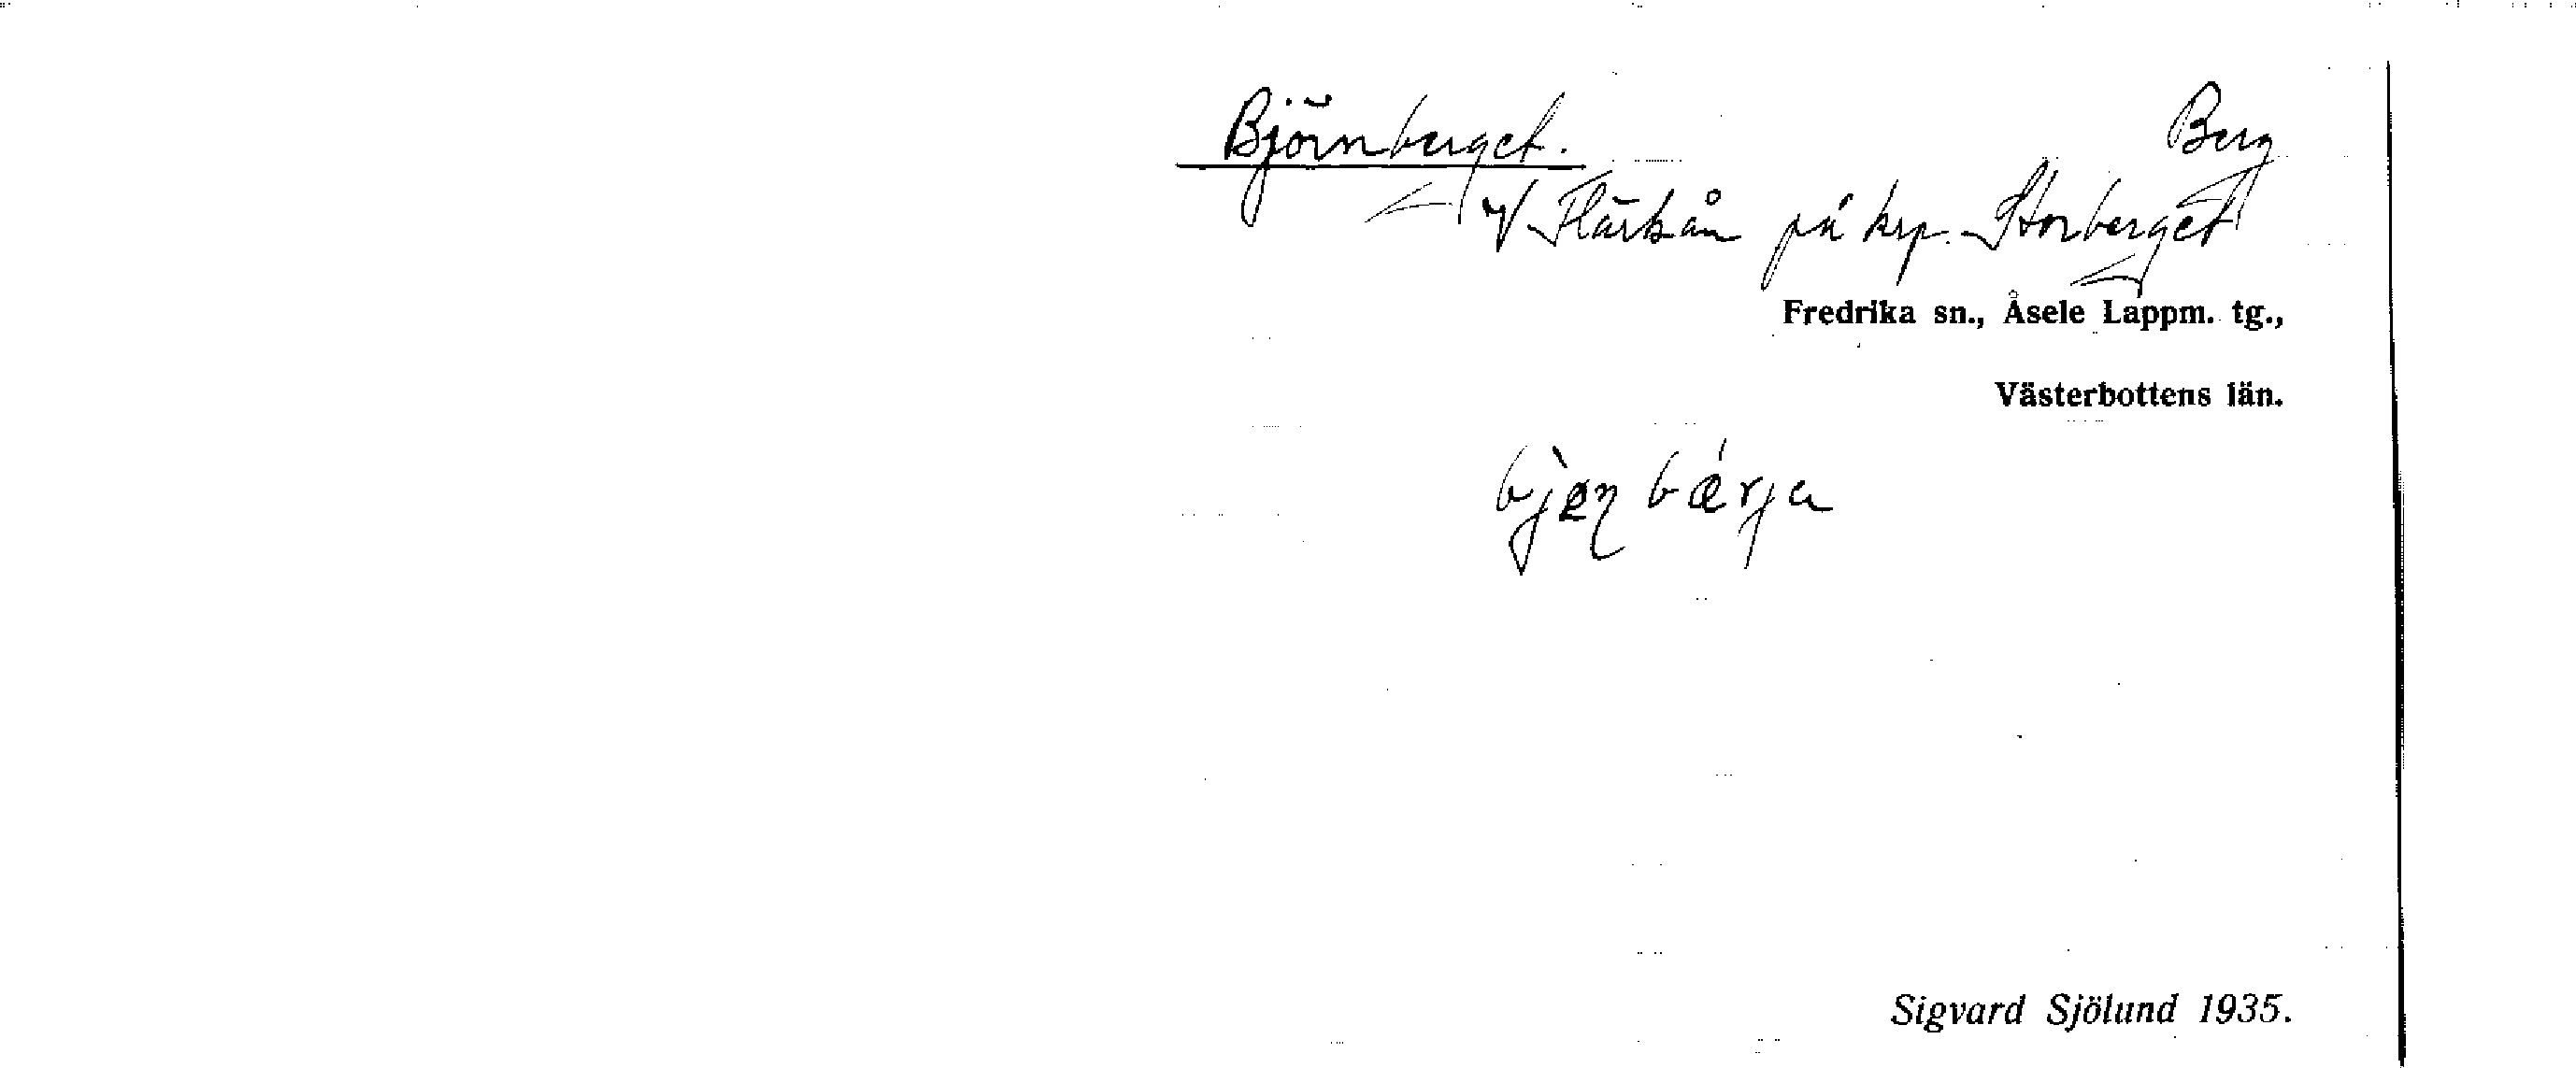 Björnberget. Berg
V Flärkån på krp. Storberget
Fredrika sn., Åsele Lappm. tg.,
Västerbottens län.
Sigvard Sjölund 1935.